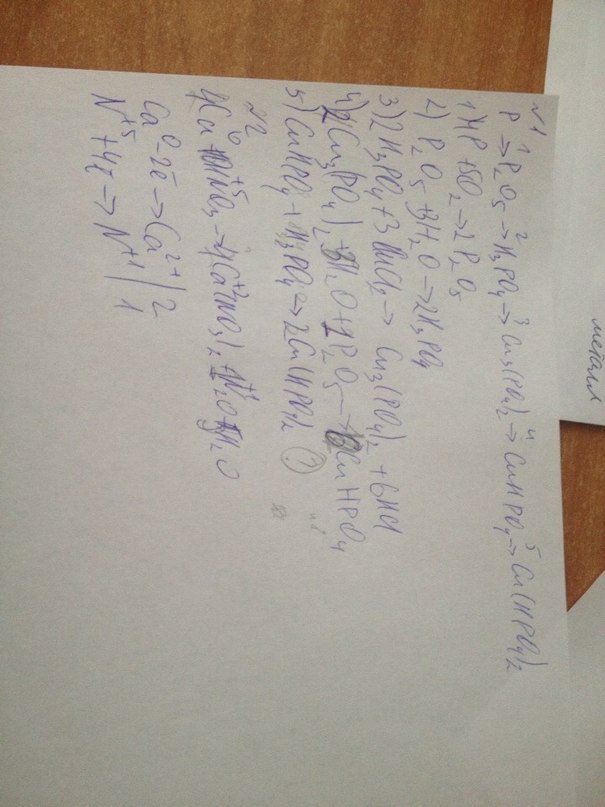 №1
P →¹ P₂O₅ →² H₃PO₄ →³ Cu₃(PO₄)₂ →⁴ CuHPO₄ →⁵ Cu(HPO₄)₂
1) 4P + 5O₂ → 2P₂O₅
2) P₂O₅ + 3H₂O → 2H₃PO₄
3) 2H₃PO₄ + 3CuCl₂ → Cu₃(PO₄)₂ + 6HCl
4) 2Cu₃(PO₄)₂ + 3H₂O + P₂O₅ → 6CuHPO₄
5) CuHPO₄ + H₃PO₄ → 2Cu(HPO₄)₂ ?
№2
4Ca⁰ + HN⁺⁵O₃ → 4Ca⁺²(NO₃)₂ + N⁺¹₂O + H₂O
Ca⁰ - 2ē → Ca²⁺ | 2
N⁺⁵ + 4ē → N⁺¹ | 1
металл